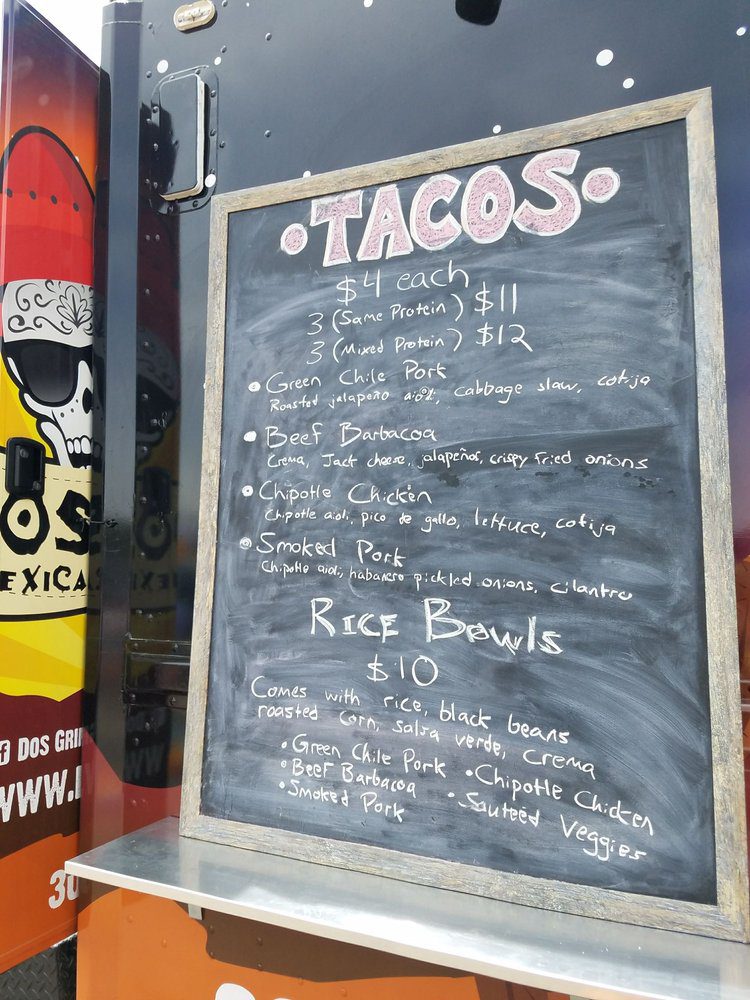 •TACOS•
$4 each
3 (Same Protein) $11
3 (Mixed Protein) $12
• Green Chile Pork
Roasted jalapeño aioli, cabbage slaw, cotija
• Beef Barbacoa
Crema, Jack cheese, jalapeños, crispy fried onions
• Chipotle Chicken
Chipotle aioli, pico de gallo, lettuce, cotija
• Smoked Pork
Chipotle aioli, habanero pickled onions, cilantro
RICE BOWLS
$10
Comes with rice, black beans
roasted corn, salsa verde, crema
• Green Chile Pork • Chipotle Chicken
• Beef Barbacoa • Sauteéd Veggies
• Smoked Pork
OS
EXICA
DOS GRI
WWW.
30